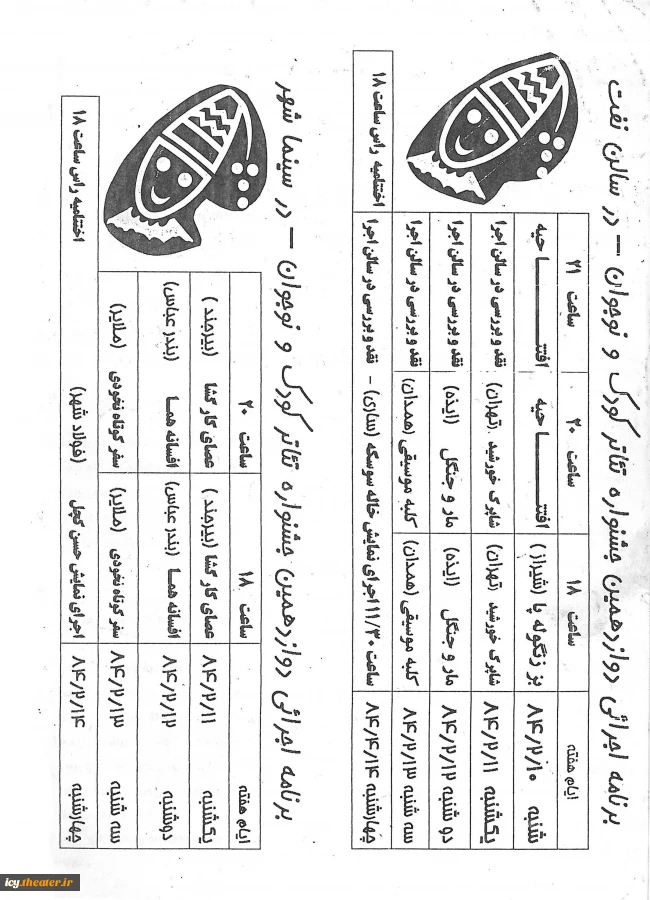 برنامه اجرائی دوازدهمین جشنواره تئاتر کودک و نوجوان — در سالن نفت
ایام هفته ساعت ۱۸ ساعت ۲۰ ساعت ۲۱
شنبه ۸۴/۲/۱۰ بز زنگوله پا (شیراز) افتتـــــاحیه افتتـــــاحیه
یکشنبه ۸۴/۲/۱۱ شاپرک خورشید (تهران) شاپرک خورشید (تهران) نقد و بررسی در سالن اجرا
دو شنبه ۸۴/۲/۱۲ مار و جنگل (ایذه) مار و جنگل (ایذه) نقد و بررسی در سالن اجرا
سه شنبه ۸۴/۲/۱۳ کلبه موسیقی (همدان) کلبه موسیقی (همدان) نقد و بررسی در سالن اجرا
چهارشنبه ۸۴/۴/۱۴ ساعت ۱۱/۳۰ اجرای نمایش خاله سوسکه (ساری) - نقد و بررسی در سالن اجرا اختتامیه راس ساعت ۱۸
برنامه اجرائی دوازدهمین جشنواره تئاتر کودک و نوجوان — در سینما شهر
ایام هفته ساعت ۱۸ ساعت ۲۰
یکشنبه ۸۴/۲/۱۱ عصای کار گشا (بیرجند) عصای کار گشا (بیرجند)
دوشنبه ۸۴/۲/۱۲ افسانه همـا (بندر عباس) افسانه همـا (بندر عباس)
سه شنبه ۸۴/۲/۱۳ سفر کوتاه نخودی (ملایر) سفر کوتاه نخودی (ملایر)
چهارشنبه ۸۴/۲/۱۴ اجرای نمایش حسن کچل (فولاد شهر) اختتامیه راس ساعت ۱۸
icy.theater.ir